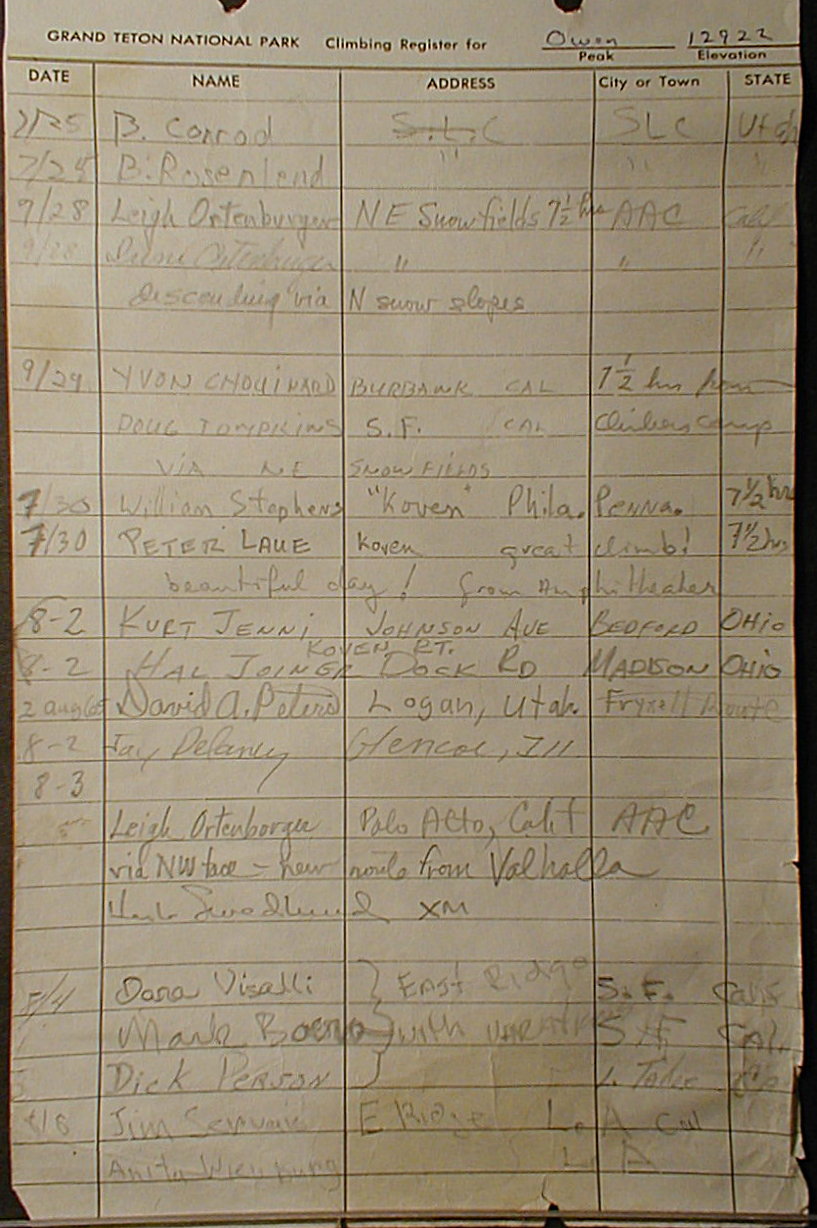 GRAND TETON NATIONAL PARK Climbing Register for Owen 12922
Peak Elevation
DATE NAME ADDRESS City or Town STATE
7/25 B. Conrod S.L.C SLC Utah
7/25 B. Rosenlend " " "
9/28 Leigh Ortenburger NE Snowfields 7½ hrs AAC Calif
9/28 Ortenburger " " "
descending via N snow slopes
9/29 YVON CHOUINARD BURBANK CAL 7½ hrs from
DOUG TOMPKINS S.F. CAL Climbers camp
VIA NE SNOWFIELDS
7/30 William Stephens "Koven" Phila. PENNA. 7½ hrs
7/30 PETER LAUE Koven great climb! 7½ hrs
beautiful day! from Amphitheater
8-2 KURT JENNI JOHNSON AVE BEDFORD OHIO
KOVEN RT.
8-2 HAL JOINER DOCK RD MADISON OHIO
2 aug 65 David A. Peters Logan, Utah. Fryxell Route
8-2 Jay Delaney Glencoe, Ill
8-3
Leigh Ortenburger Palo Alto, Calif AAC
via NW face - new route from Valhalla
XM
8/4 Dana Visalli } East Ridge S.F. Calif
Mark } with S F Cal.
Dick PERSON } Tahoe
8/6 Jim E Ridge L. A Cal
Anita L A